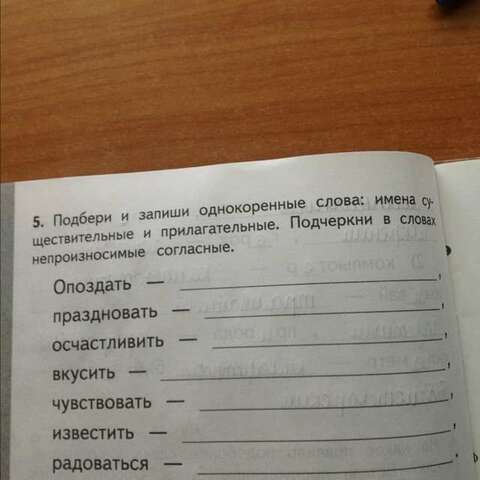 5. Подбери и запиши однокоренные слова: имена су-
ществительные и прилагательные. Подчеркни в словах
непроизносимые согласные.
Опоздать — ,
праздновать — ,
осчастливить — ,
вкусить — ,
чувствовать — ,
известить — ,
радоваться —